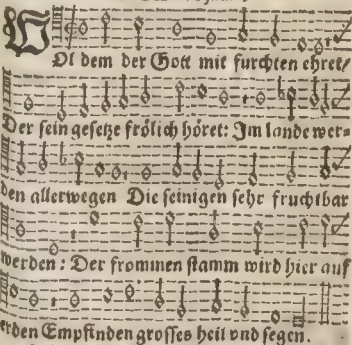 WOl dem der Gott mit furchten ehret/
Der sein gesetze frölich höret: Jm lande wer=
den allerwegen Die seinigen sehr fruchtbar
werden: Der frommen stamm wird hier auf
erden Empfinden grosses heil vnd segen.